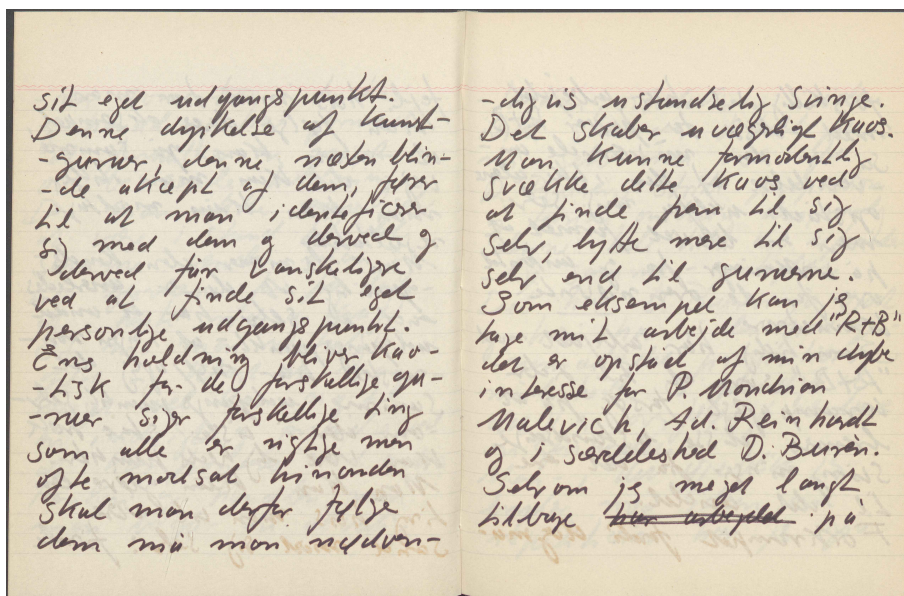 sit eget udgangspunkt.
Denne dyrkelse af kunst-
-guruer, denne næsten blin-
-de aksept af dem, fører
til at man identificerer
sig med dem og derved og
derved får vanskeligere
ved at finde sit eget
personlige udgangspunkt.
Ens holdning bliver kao-
-tisk for de forskellige gu-
-ruer siger forskellige ting
som alle er rigtige men
ofte modsat hinanden
skal man derfor følge
dem må man nødven-
-digvis ustandselig svinge.
Det skaber uvægerligt kaos.
Man kunne formodentlig
svække dette kaos ved
at finde frem til sig
selv, lytte mere til sig
selv end til guruerne.
Som eksempel kan jeg
tage mit arbejde med "R+B"
det er opstået af min dybe
interesse for P. Mondrian
Malevich, Ad. Reinhardt
og i særdeleshed D. Buren.
Selvom jeg meget langt
tilbage har arbejdet på